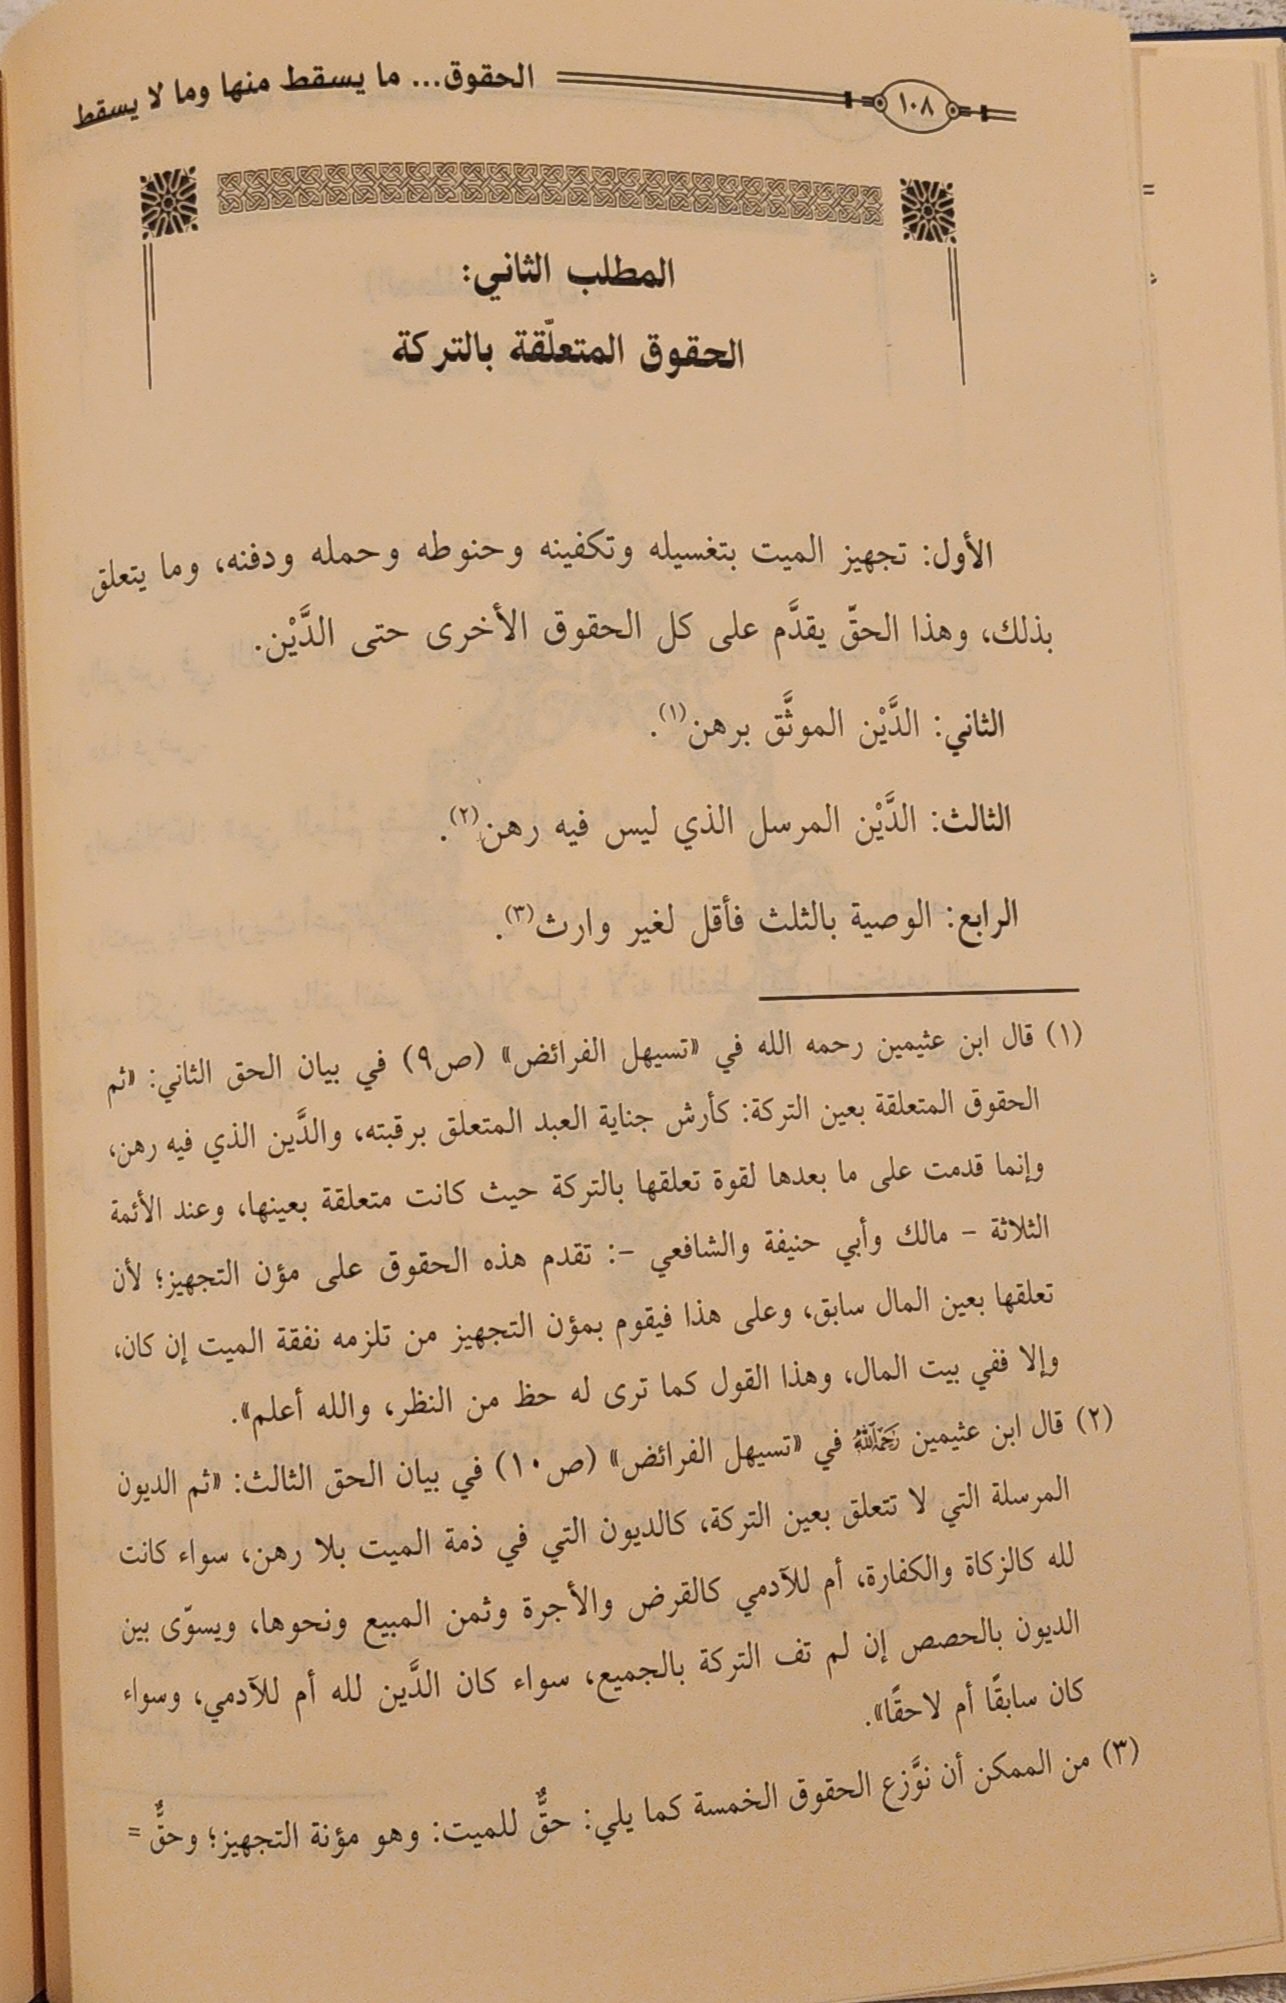 ١٠٨
الحقوق... ما يسقط منها وما لا يسقط
المطلب الثاني:
الحقوق المتعلّقة بالتركة
الأول: تجهيز الميت بتغسيله وتكفينه وحنوطه وحمله ودفنه، وما يتعلق
بذلك، وهذا الحقّ يقدَّم على كل الحقوق الأخرى حتى الدَّيْن.
الثاني: الدَّيْن الموثَّق برهن(١).
الثالث: الدَّيْن المرسل الذي ليس فيه رهن(٢).
الرابع: الوصية بالثلث فأقل لغير وارث(٣).
(١) قال ابن عثيمين رحمه الله في «تسيهل الفرائض» (ص٩) في بيان الحق الثاني: «ثم
الحقوق المتعلقة بعين التركة: كأرش جناية العبد المتعلق برقبته، والدَّين الذي فيه رهن،
وإنما قدمت على ما بعدها لقوة تعلقها بالتركة حيث كانت متعلقة بعينها، وعند الأئمة
الثلاثة - مالك وأبي حنيفة والشافعي -: تقدم هذه الحقوق على مؤن التجهيز؛ لأن
تعلقها بعين المال سابق، وعلى هذا فيقوم بمؤن التجهيز من تلزمه نفقة الميت إن كان،
وإلا ففي بيت المال، وهذا القول كما ترى له حظ من النظر، والله أعلم».
(٢) قال ابن عثيمين رَحِمَهُ اللَّهُ في «تسيهل الفرائض» (ص١٠) في بيان الحق الثالث: «ثم الديون
المرسلة التي لا تتعلق بعين التركة، كالديون التي في ذمة الميت بلا رهن، سواء كانت
لله كالزكاة والكفارة، أم للآدمي كالقرض والأجرة وثمن المبيع ونحوها، ويسوّى بين
الديون بالحصص إن لم تف التركة بالجميع، سواء كان الدَّين لله أم للآدمي، وسواء
كان سابقًا أم لاحقًا».
(٣) من الممكن أن نوَّزع الحقوق الخمسة كما يلي: حقٌّ للميت: وهو مؤنة التجهيز؛ وحقٌّ =